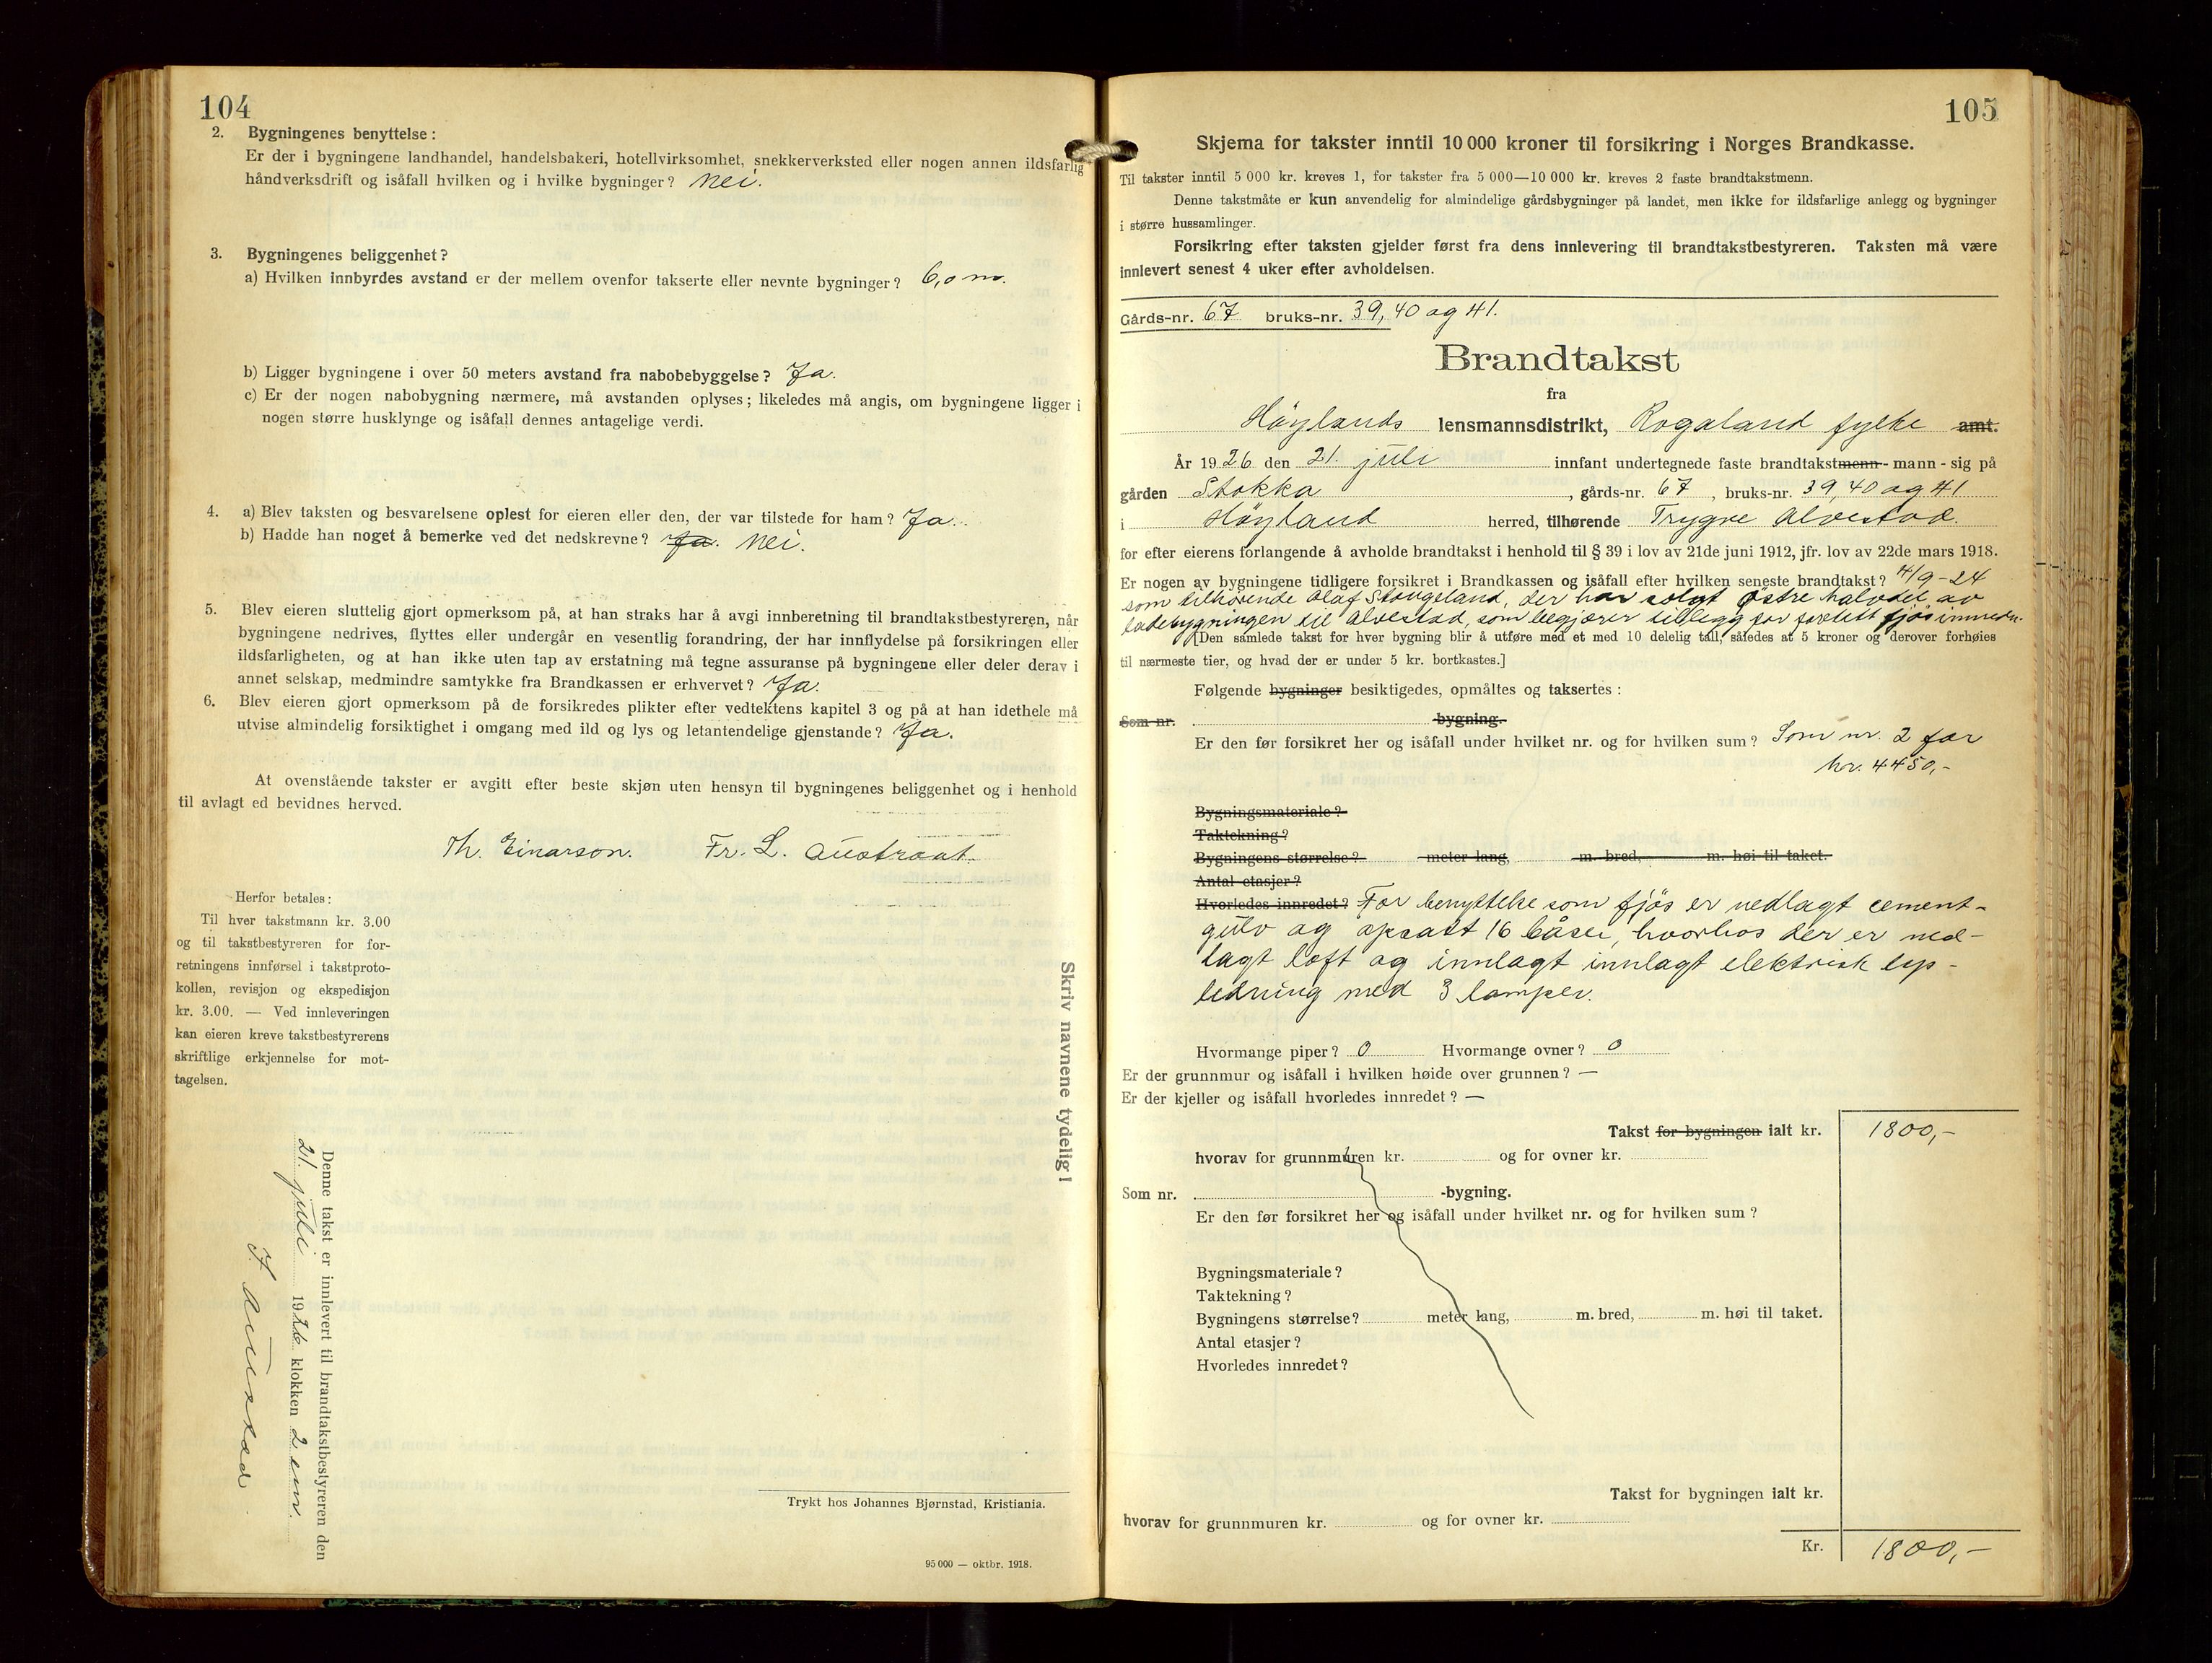 104
2. Bygningenes benyttelse:
Er der i bygningene landhandel, handelsbakeri, hotellvirksomhet, snekkerverksted eller nogen annen ildsfarlig
håndverksdrift og isåfall hvilken og i hvilke bygninger? Nei.
3. Bygningenes beliggenhet?
a) Hvilken innbyrdes avstand er der mellem ovenfor takserte eller nevnte bygninger? 6,0 m.
b) Ligger bygningene i over 50 meters avstand fra nabobebyggelse? Ja.
c) Er der nogen nabobygning nærmere, må avstanden oplyses; likeledes må angis, om bygningene ligger i
nogen større husklynge og isåfall dennes antagelige verdi.
4. a) Blev taksten og besvarelsene oplest for eieren eller den, der var tilstede for ham? Ja.
b) Hadde han noget å bemerke ved det nedskrevne? Ja. Nei.
5. Blev eieren sluttelig gjort opmerksom på, at han straks har å avgi innberetning til brandtakstbestyreren, når
bygningene nedrives, flyttes eller undergår en vesentlig forandring, der har innflydelse på forsikringen eller
ildsfarligheten, og at han ikke uten tap av erstatning må tegne assuranse på bygningene eller deler derav i
annet selskap, medmindre samtykke fra Brandkassen er erhvervet? Ja.
6. Blev eieren gjort opmerksom på de forsikredes plikter efter vedtektens kapitel 3 og på at han idethele må
utvise almindelig forsiktighet i omgang med ild og lys og letantendelige gjenstande? Ja.
At ovenstående takster er avgitt efter beste skjøn uten hensyn til bygningenes beliggenhet og i henhold
til avlagt ed bevidnes herved.
Th. Einarson. Fr. L. Austraat.
Herfor betales:
Til hver takstmann kr. 3.00
og til takstbestyreren for for-
retningens innførsel i takstproto-
kollen, revisjon og ekspedisjon
kr. 3.00. — Ved innleveringen
kan eieren kreve takstbestyrerens
skriftlige erkjennelse for mot-
tagelsen.
Skriv navnene tydelig!
Denne takst er innlevert til brandtakstbestyreren den
21. juli 1926 klokken 2 em.
Trykt hos Johannes Bjørnstad, Kristiania.
95 000 — oktbr. 1918.
105
Skjema for takster inntil 10 000 kroner til forsikring i Norges Brandkasse.
Til takster inntil 5 000 kr. kreves 1, for takster fra 5 000—10 000 kr. kreves 2 faste brandtakstmenn.
Denne takstmåte er kun anvendelig for almindelige gårdsbygninger på landet, men ikke for ildsfarlige anlegg og bygninger
i større hussamlinger.
Forsikring efter taksten gjelder først fra dens innlevering til brandtakstbestyreren. Taksten må være
innlevert senest 4 uker efter avholdelsen.
Gårds-nr. 67 bruks-nr. 39, 40 og 41.
Brandtakst
fra
Höylands lensmannsdistrikt, Rogaland fylke amt.
År 1926 den 21. juli innfant undertegnede faste brandtakstmenn - mann - sig på
gården Stokka, gårds-nr. 67, bruks-nr. 39, 40 og 41
i Höyland herred, tilhørende Trygve Alvestad.
for efter eierens forlangende å avholde brandtakst i henhold til § 39 i lov av 21de juni 1912, jfr. lov av 22de mars 1918.
Er nogen av bygningene tidligere forsikret i Brandkassen og isåfall efter hvilken seneste brandtakst? 4/9-24
som tilhørende Olaf Stangeland, der har solgt østre halvdel av
ladebygningen til Alvestad, som begjærer tillegg for foretatt fjøsinnredn.
[Den samlede takst for hver bygning blir å utføre med et med 10 delelig tall, således at 5 kroner og derover forhøies
til nærmeste tier, og hvad der er under 5 kr. bortkastes.]
Følgende bygninger besiktigedes, opmåltes og taksertes:
Som nr. -bygning.
Er den før forsikret her og isåfall under hvilket nr. og for hvilken sum? Som nr. 2 for
kr. 4450,-
Bygningsmateriale?
Taktekning?
Bygningens størrelse? meter lang, m. bred, m. høi til taket.
Antal etasjer?
Hvorledes innredet? For benyttelse som fjös er nedlagt cement-
gulv og opsatt 16 båser, hvorhos der er ned-
lagt loft og innlagt innlagt elektrisk lys-
ledning med 3 lamper.
Hvormange piper? 0 Hvormange ovner? 0
Er der grunnmur og isåfall i hvilken høide over grunnen? —
Er der kjeller og isåfall hvorledes innredet? —
Takst for bygningen ialt kr. 1800,-
hvorav for grunnmuren kr. og for ovner kr.
Som nr. -bygning.
Er den før forsikret her og isåfall under hvilket nr. og for hvilken sum?
Bygningsmateriale?
Taktekning?
Bygningens størrelse? meter lang, m. bred, m. høi til taket.
Antal etasjer?
Hvorledes innredet?
Takst for bygningen ialt kr.
hvorav for grunnmuren kr. og for ovner kr.
Kr. 1800,-